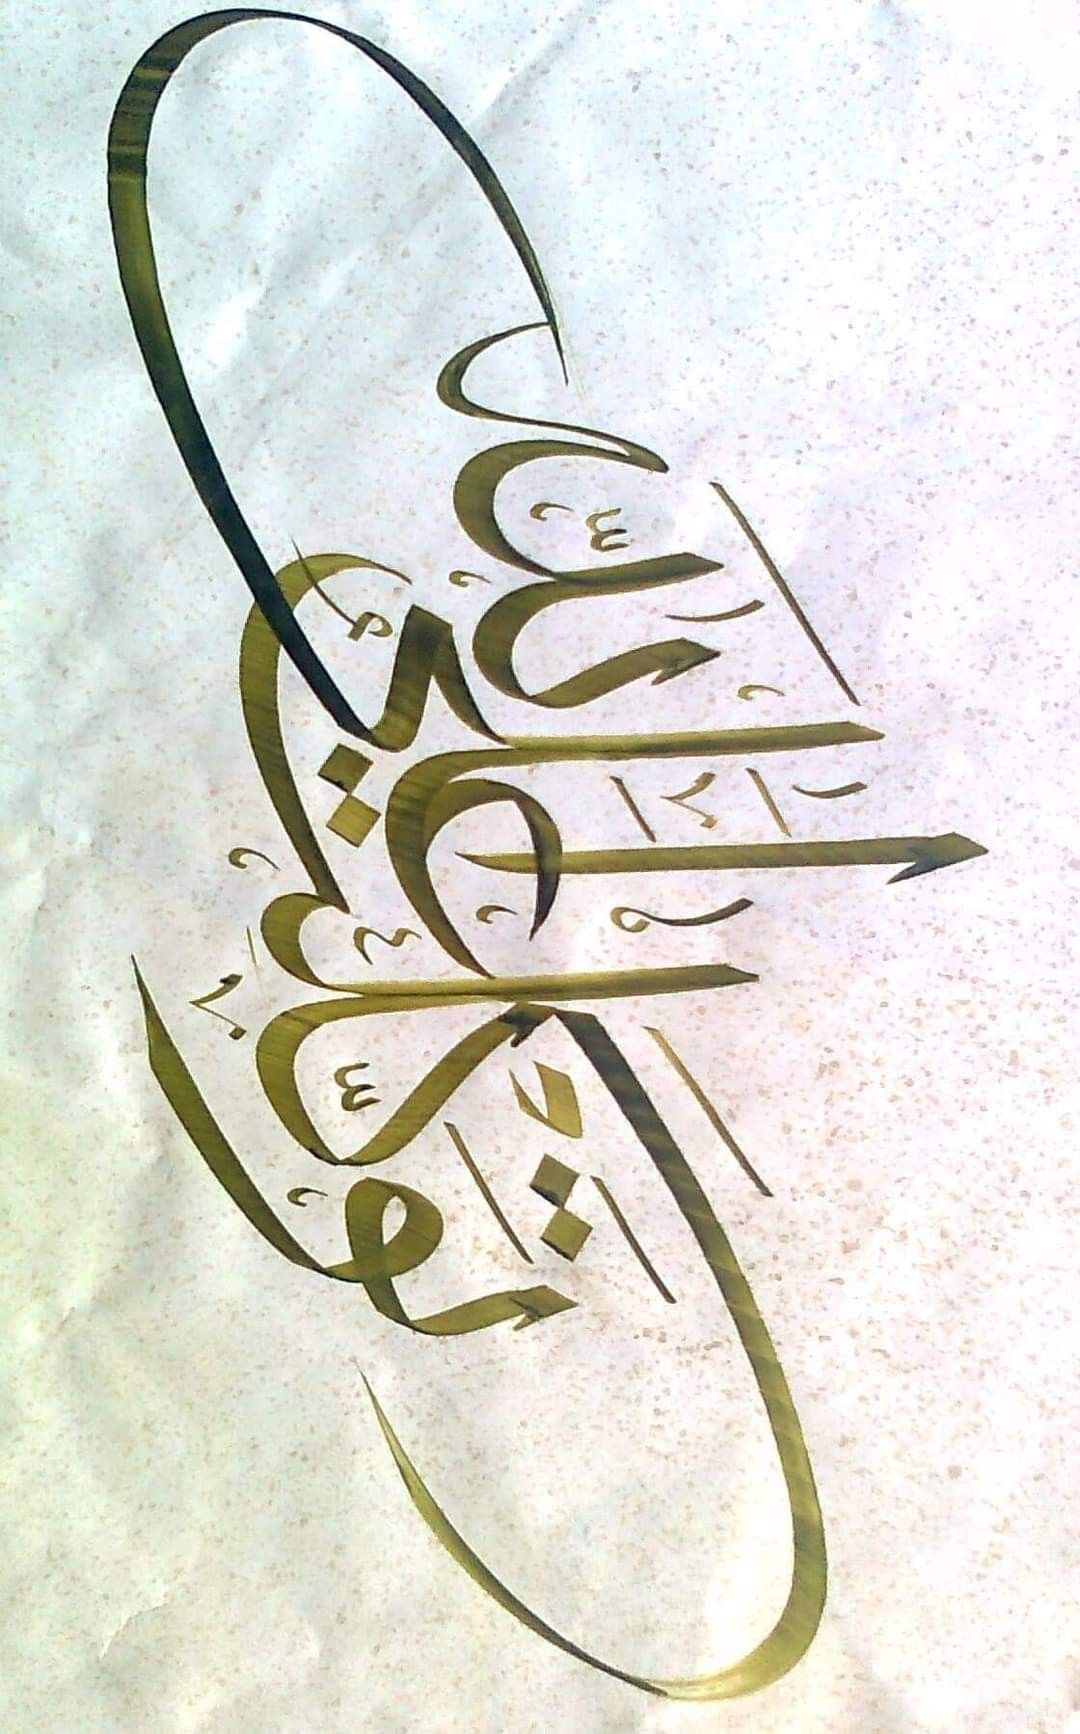 تَوَكَّلْتُ عَلَى اللّٰه